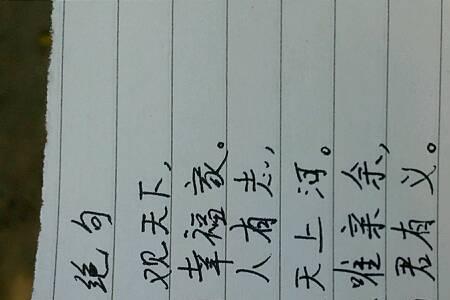 绝句
观天下,
幸福家。
人有志,
天上河。
唯亲余,
君有义。